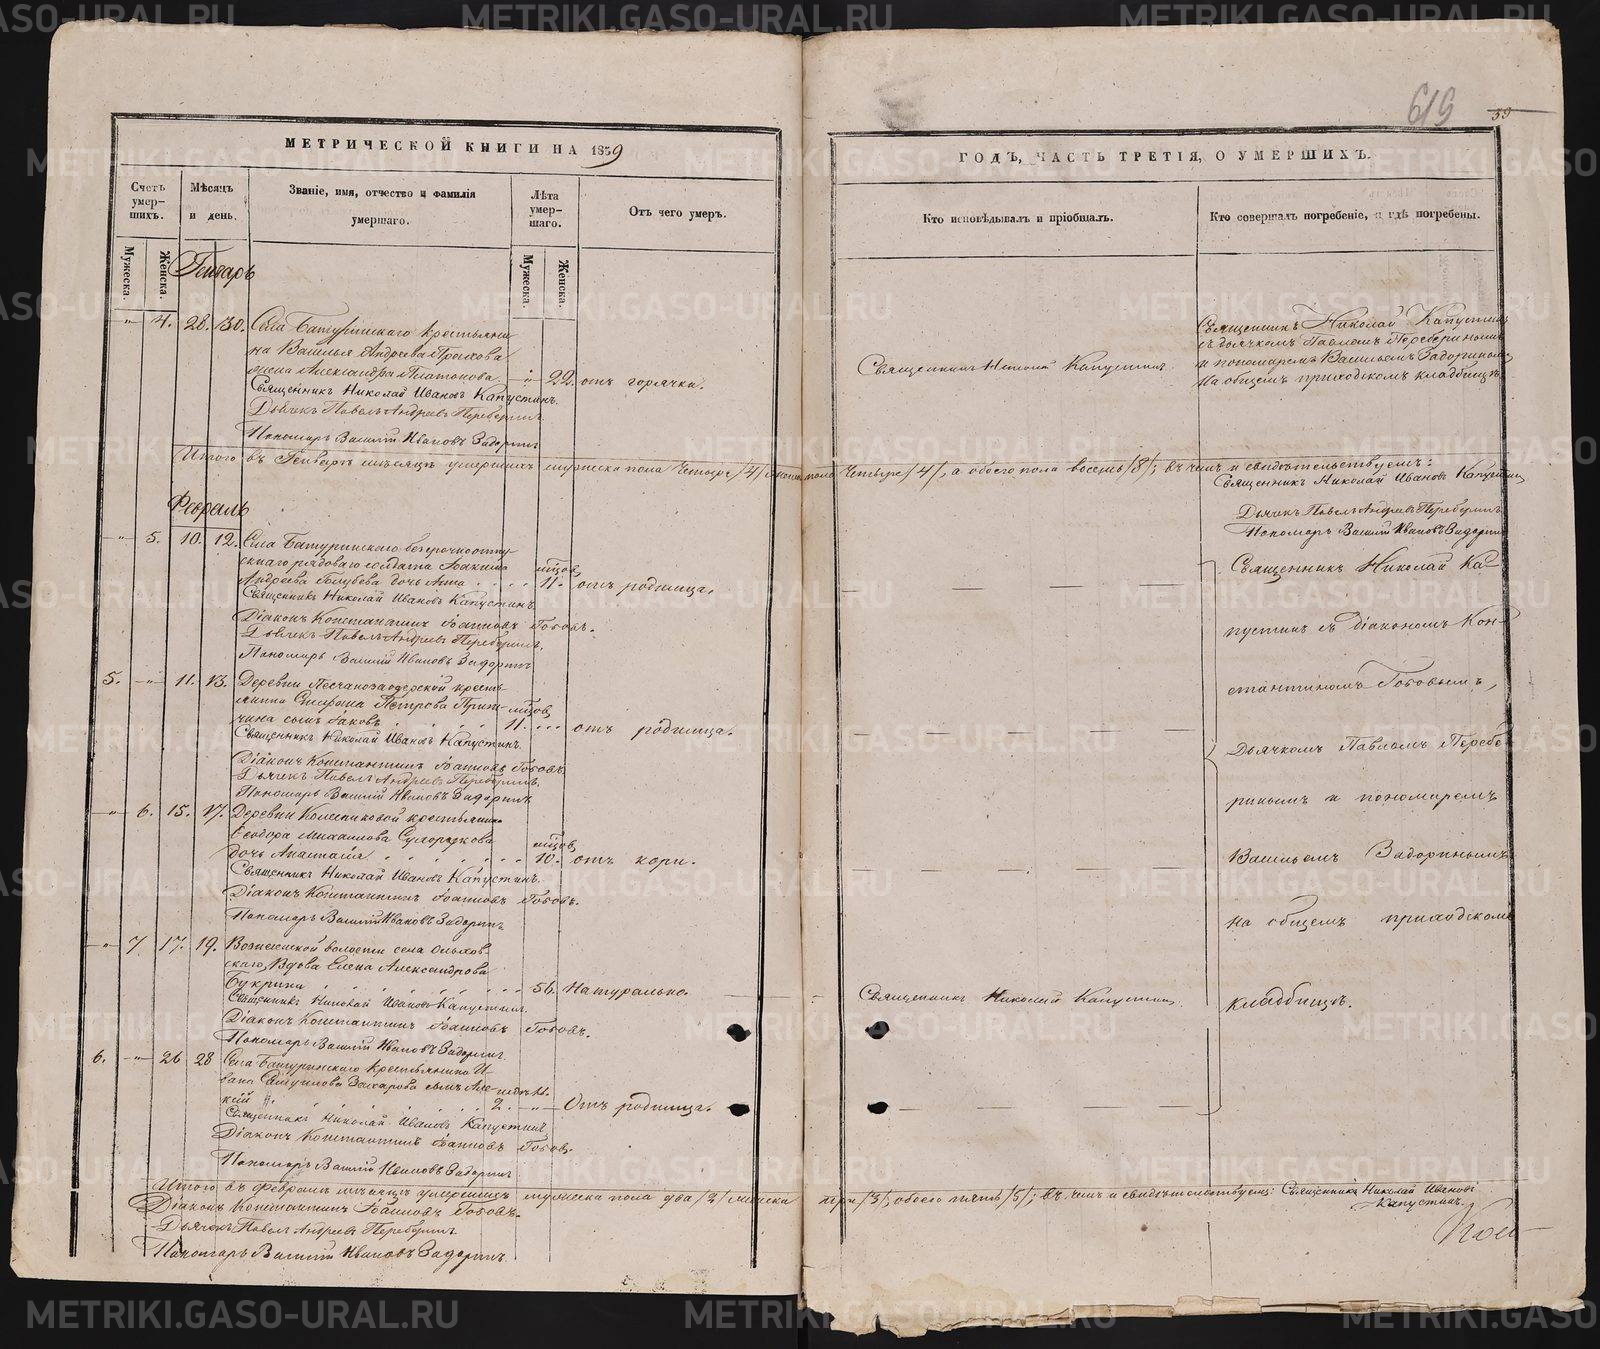 МЕТРИЧЕСКОЙ КНИГИ НА 1859
ГОДЪ, ЧАСТЬ ТРЕТІЯ, О УМЕРШИХЪ.
619
59
Счетъ умер-шихъ.
Мѣсяцъ и день.
Званіе, имя, отчество и фамилія умершаго.
Лѣта умер-шаго.
Отъ чего умеръ.
Кто исповѣдывалъ и пріобщалъ.
Кто совершалъ погребеніе, и гдѣ погребены.
Мужеска.
Женска.
Мужеска.
Женска.
Генварь
4. 28. 30. Села Батуринскаго крестьяни-
на Василья Андреева
жена Александра Платонова 22. отъ горячки.
Священникъ Николай Капустинъ
Священникъ Николай Капустинъ
съ дьячкомъ Павломъ Переберинымъ
и пономаремъ Васильемъ Задоринымъ
На общемъ приходскомъ кладбищѣ.
Священникъ Николай Ивановъ Капустинъ.
Дьячекъ Павелъ Андреевъ Переберинъ.
Пономарь Василій Ивановъ Задоринъ
Итого въ Генварѣ мѣсяцѣ умершихъ мужеска пола Четыре /4/ женска пола Четыре /4/, а обоего пола восемь /8/; въ чемъ и свидѣтельствуемъ:
Священникъ Николай Ивановъ Капустинъ
Дьячекъ Павелъ Андреевъ Переберинъ
Пономарь Василій Ивановъ Задоринъ
Февраль
5. 10. 12. Села Батуринскаго безсрочноотпу-
скнаго рядоваго солдата Іоакима
Андреева Голубева дочь Анна 11. мѣсяцов отъ родимца.
Священникъ Николай Ивановъ Капустинъ.
Діаконъ Константинъ Іоанновъ Боговъ.
Дьячекъ Павелъ Андреевъ Переберинъ.
Пономарь Василій Ивановъ Задоринъ
5. 11. 13. Деревни Песчаноозерской кресть-
янина Петрова
сынъ Іаковъ 11. отъ родимца.
Священникъ Николай Ивановъ Капустинъ.
Діаконъ Константинъ Іоанновъ Боговъ.
Дьячекъ Павелъ Андреевъ Переберинъ.
Пономарь Василій Ивановъ Задоринъ
6. 15. 17. Деревни Колесниковой крестьянина
Ѳеодора Михаилова
дочь Анастасія 10. отъ кори.
Священникъ Николай Ивановъ Капустинъ.
Діаконъ Константинъ Іоанновъ Боговъ.
Пономарь Василій Ивановъ Задоринъ
7 17. 19. волости села Ольхов-
скаго, Вдова Елена Александрова
Букрина 56. Натурально.
Священникъ Николай Капустинъ
Священникъ Николай Ивановъ Капустинъ.
Діаконъ Константинъ Іоанновъ Боговъ.
Пономарь Василій Ивановъ Задоринъ.
6. 26 28 Села Батуринскаго крестьянина И-
вана Захарова сынъ Але-
ксій 2. Отъ родимца.
Священникъ Николай Ивановъ Капустинъ
Діаконъ Константинъ Іоанновъ Боговъ.
Пономарь Василій Ивановъ Задоринъ
Священникъ Николай Ка-
пустинъ съ діакономъ Кон-
стантиномъ Боговымъ,
дьячкомъ Павломъ Перебе-
ринымъ и пономаремъ
Васильемъ Задоринымъ
на общемъ приходскомъ
кладбищѣ.
Итого въ Февралѣ мѣсяцѣ умершихъ мужеска пола два /2/ женска три /3/, обоего пять /5/; въ чемъ и свидѣтельствуемъ: Священникъ Николай Ивановъ
Капустинъ.
Діаконъ Константинъ Іоанновъ Боговъ.
Дьячекъ Павелъ Андреевъ Переберинъ.
Пономарь Василій Ивановъ Задоринъ.
METRIKI.GASO-URAL.RU